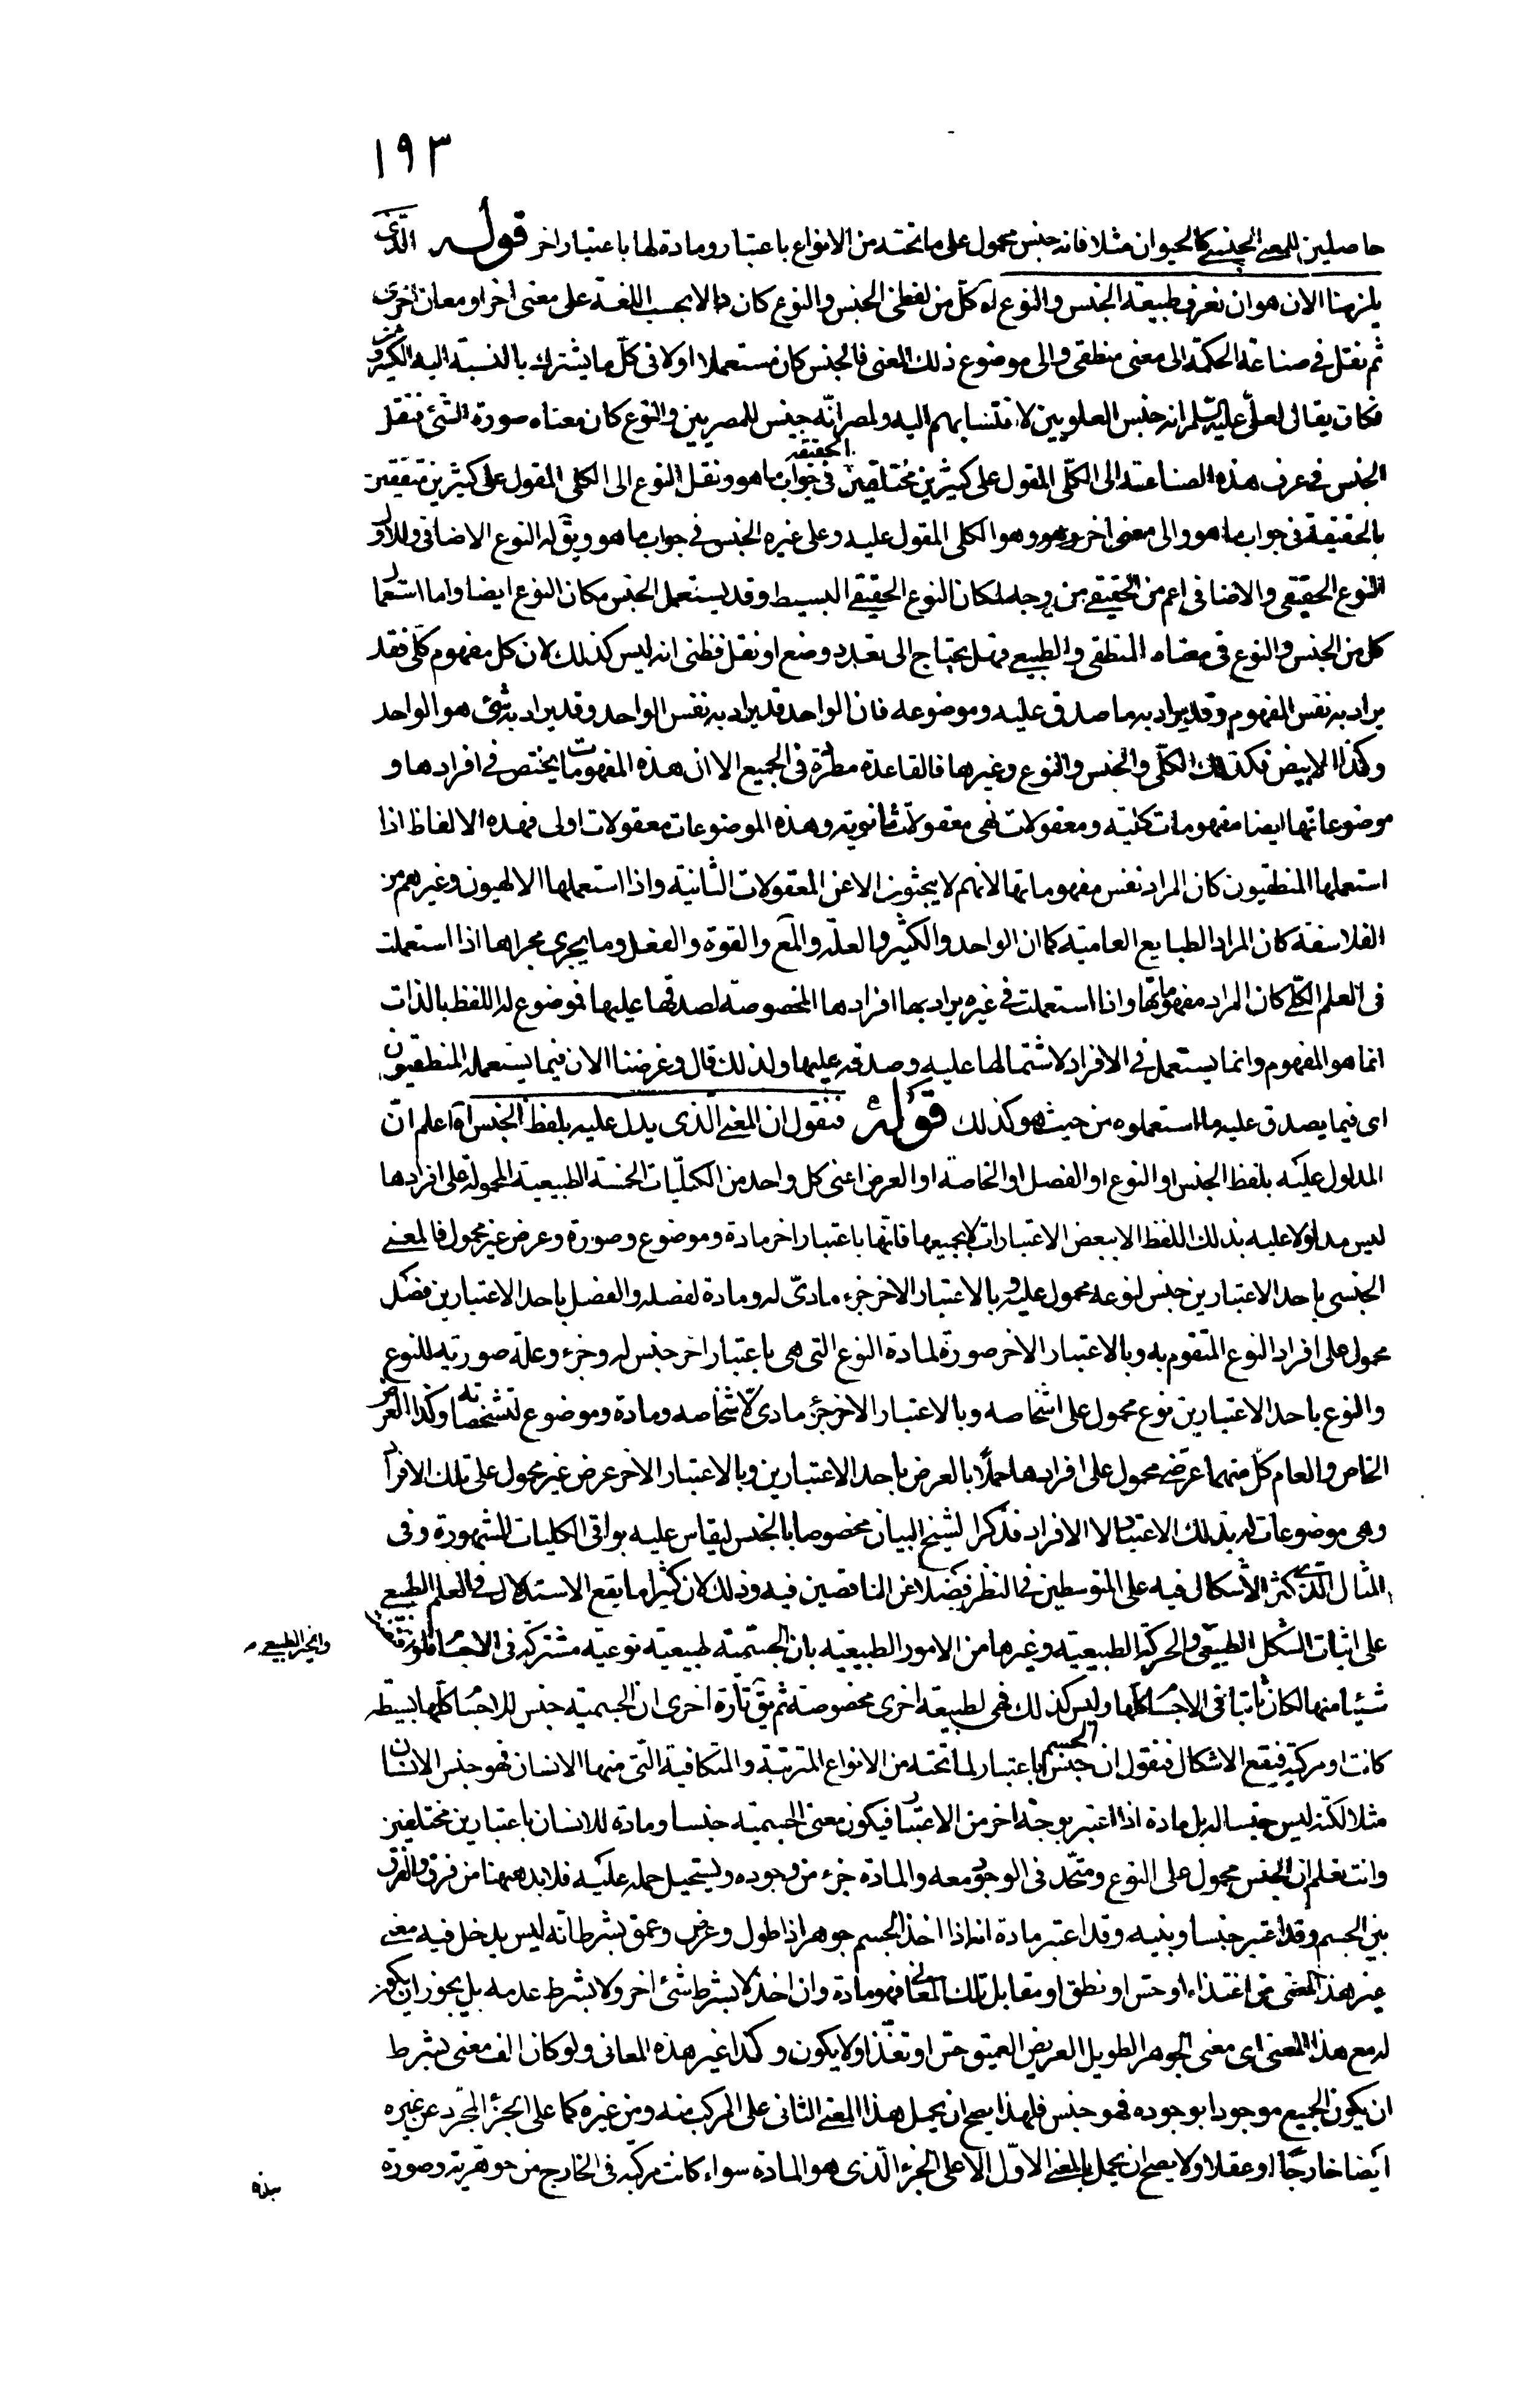 ١٩٣
حاصلين للمعنى الجنسى كالحيوان مثلا فانه جنس محمول على ما تحته من الانواع باعتبار ومادة لها باعتبار اخر قوله الذى
يلزمنا الان هو ان نعرف طبيعة الجنس والنوع اه كل من لفظى الجنس والنوع كان دالا بحسب اللغة على معنى اخر او معان اخرى
ثم نقل فى صناعة الحكمة الى معنى منطقى والى موضوع ذلك المعنى فالجنس كان مستعملا اولا فى كل ما يشترك بالنسبة اليه الكثيرون
فكان يقال لعلى عليه السلم انه جنس العلويين لانتسابهم اليه ولمصر انه جنس للمصريين والنوع كان معناه صورة الشئ فنقل
الجنس فى عرف هذه الصناعة الى الكلى المقول على كثيرين مختلفين الحقيقة فى جواب ما هو ونقل النوع الى الكلى المقول على كثيرين متفقين
بالحقيقة فى جواب ما هو والى معنى اخر وهو وهو الكلى المقول عليه وعلى غيره الجنس فى جواب ما هو ويق له النوع الاضافى وللاول
النوع الحقيقى والاضافى اعم من الحقيقى من وجه لمكان النوع الحقيقى البسيط وقد يستعمل الجنس مكان النوع ايضا واما استعمال
كل من الجنس والنوع فى معناه المنطقى والطبيعى فهل يحتاج الى تعدد وضع او نقل فظنى انه ليس كذلك لان كل مفهوم كلى فقد
يراد به نفس المفهوم وقد يراد به ما صدق عليه وموضوعه فان الواحد قد يراد به نفس الواحد وقد يراد به شئ هو الواحد
وكذا الابيض فكذلك الكلى والجنس والنوع وغيرها فالقاعدة مطردة فى الجميع الا ان هذه المفهومات يختص فى افرادها و
موضوعاتها ايضا مفهومات كلية ومعقولات فهى معقولات ثانوية وهذه الموضوعات معقولات اولى فهذه الالفاظ اذا
استعملها المنطقيون كان المراد نفس مفهوماتها لانهم لا يبحثون الا عن المعقولات الثانية واذا استعملها الالهيون وغيرهم من
الفلاسفة كان المراد الطبايع العامية كما ان الواحد والكثير والعلة والمع والقوة والفعل وما يجرى مجراها اذا استعملت
فى العلم الكلى كان المراد مفهوماتها واذا استعملت فى غيره يراد بها افرادها المخصوصة لصدقها عليها فموضوع له اللفظ بالذات
انما هو المفهوم وانما يستعمل فى الافراد لاشتمالها عليه وصدقه عليها ولذلك قال وغرضنا الان فيما يستعمله المنطقيون
اى فيما يصدق عليه ما استعملوه من حيث هو كذلك قوله فنقول ان المعنى الذى يدل عليه بلفظ الجنس اه اعلم ان
المدلول عليه بلفظ الجنس او النوع او الفصل او الخاصة او العرض اعنى كل واحد من الكليات الخمسة الطبيعية المحمولة على افرادها
ليس مدلولا عليه بذلك اللفظ الا ببعض الاعتبارات لا بجميعها فانها باعتبار اخر مادة وموضوع وصورة وعرض غير محمول فالمعنى
الجنسى باحد الاعتبارين جنس لنوعه محمول عليه وبالاعتبار الاخر جزء مادى له ومادة لفصله والفصل باحد الاعتبارين فصل
محمول على افراد النوع المتقوم به وبالاعتبار الاخر صورة لمادة النوع التى هى باعتبار اخر جنس له وجزء وعلة صورية للنوع
والنوع باحد الاعتبارين نوع محمول على اشخاصه وبالاعتبار الاخر جزء مادى لاشخاصه ومادة وموضوع لتشخصاته وكذا العرض
الخاص والعام كل منهما عرضى محمول على افرادها حملا بالعرض باحد الاعتبارين وبالاعتبار الاخر عرض غير محمول على تلك الافراد
وهى موضوعات له بذلك الاعتبار لا الافراد فذكر الشيخ البيان مخصوصا بالجنس ليقاس عليه بواقى الكليات المشهورة وفى
المثال الذى كثر الاشكال فيه على المتوسطين فى النظر فضلا عن الناقصين فيه وذلك لان كثيرا ما يقع الاستدلال فى العلم الطبيعى
على اثبات الشكل الطبيعى والحركة الطبيعية وغيرها من الامور الطبيعية بان الجسمية طبيعية نوعية مشتركة فى الاجسام فلو
والحيز الطبيعى
شيئا منها لكان ثابتا فى الاجسام كلها وليس كذلك فهى لطبيعة اخرى مخصوصة ثم يق تارة اخرى ان الجسمية جنس للاجسام كلها بسيطة
كانت او مركبة فيقع الاشكال فنقول ان الجسم جنس باعتبار لما تحته من الانواع المترتبة والمتكافية التى منها الانسان فهو جنس الانسان
مثلا لكنه ليس جنسا له بل مادة اذا اعتبر بوجه اخر من الاعتبار فيكون معنى الجسمية جنسا ومادة للانسان باعتبارين مختلفين
وانت تعلم ان الجنس محمول على النوع ومتحد فى الوجود معه والمادة جزء من وجوده ويستحيل حمله عليه فلا بد ههنا من فرق والفرق
بين الجسم وقد اعتبر جنسا وبينه وقد اعتبر مادة انه اذا اخذ الجسم جوهرا ذا طول وعرض وعمق بشرط انه ليس يدخل فيه معنى
غير هذا المعنى من اغتذاء او حس او نطق او مقابل تلك المعانى فهو مادة وان اخذ لا بشرط شئ اخر ولا بشرط عدمه بل يجوز ان يكون
له مع هذا المعنى اى معنى الجوهر الطويل العريض العميق حس او تغذ او لا يكون وكذا غير هذه المعانى ولو كان الف معنى بشرط
ان يكون الجميع موجودا بوجوده فهو جنس فلهذا يصح ان يحمل هذا المعنى الثانى على المركب منه ومن غيره كما على الجزء المجرد عن غيره
ايضا خارجا او عقلا ولا يصح ان يحمل بالمعنى الاول الا على الجزء الذى هو المادة سواء كانت مركبة فى الخارج من جوهرية وصورة